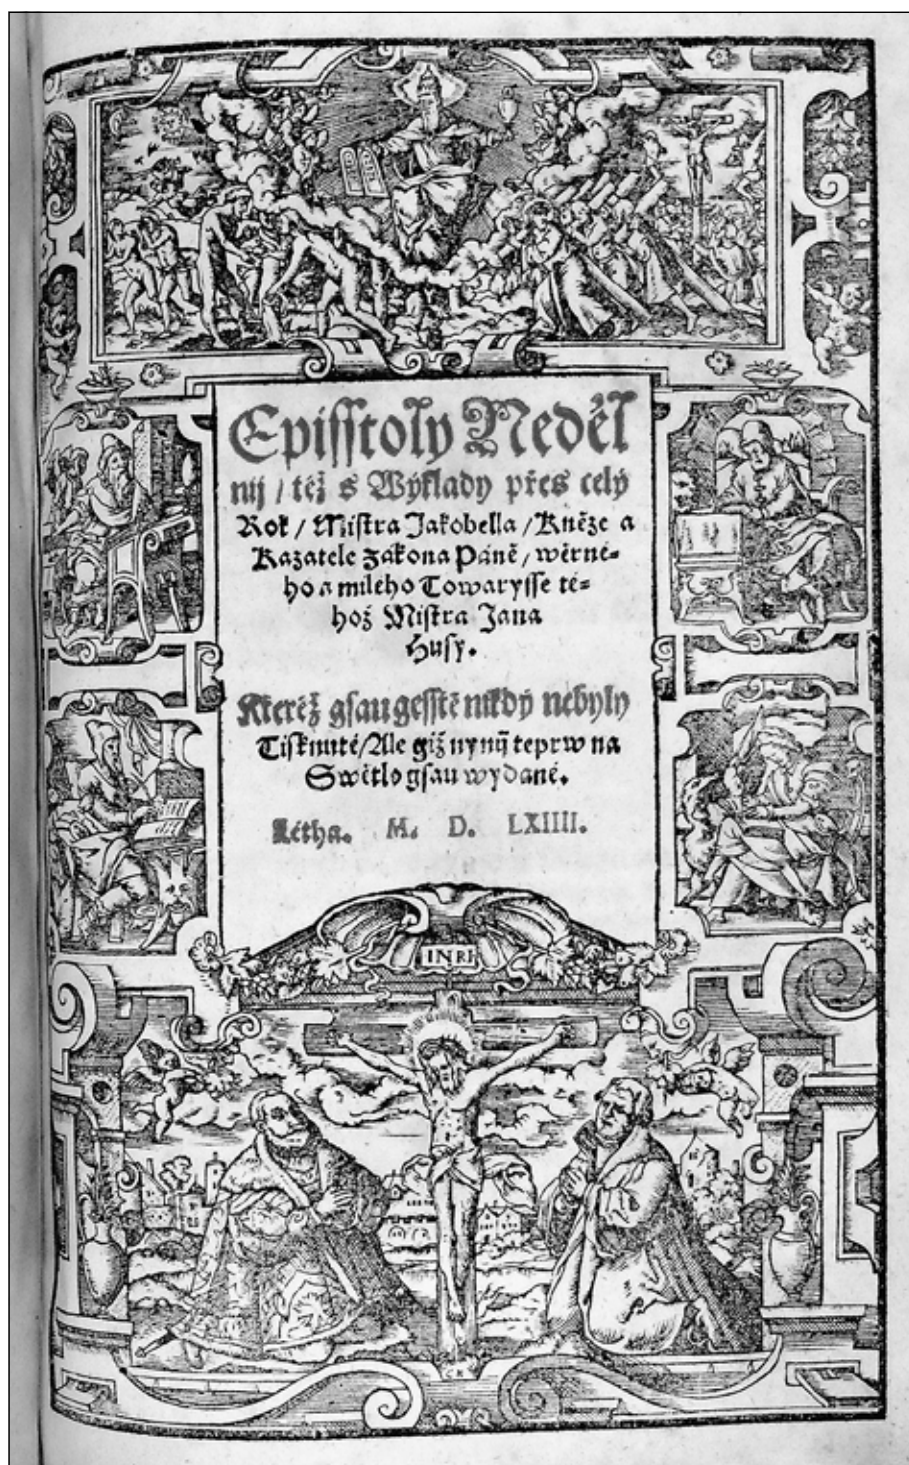 Episstoly Neděl
nij / též s Wýklady přes celý
Rok / Mistra Jakobella / Kněze a
Kazatele zákona Páně / wěrné-
ho a milého Towarysse té-
hož Mistra Jana
Husy.
Kteréž gsau gesstě nikdý nebyly
Tisknuté / Ale giž nynij teprw na
Swětlo gsau wydané.
Létha. M. D. LXIIII.
INRI